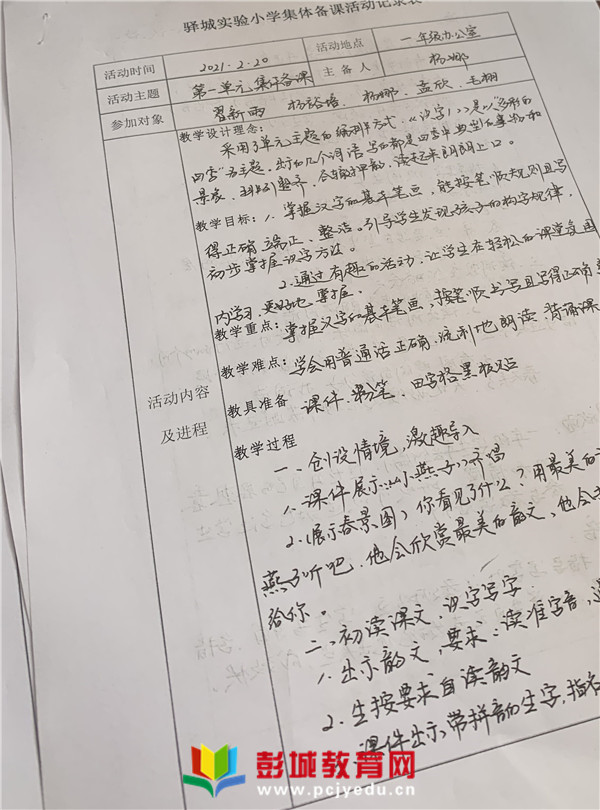 驿城实验小学集体备课活动记录表
活动时间 2021.2.20 活动地点 一年级办公室
活动主题 第一单元集体备课 主备人 杨娜
参加对象 翟新雨 杨裕培、杨娜、孟欣、毛栩
活动内容
及进程
教学设计理念:
采用了单元主题的编排方式,《识字1》是以"多彩的
四季"为主题。出示的几个词语写的都是四季中典型的事物和
景象,排列整齐,合辙押韵,读起来朗朗上口。
教学目标:1、掌握汉字的基本笔画,能按笔顺规则且写
得正确、端正、整洁。引导学生发现孩子的构字规律,
初步掌握识字方法。
2.通过有趣的活动,让学生在轻松的课堂氛围
内学习,更好地掌握。
教学重点:掌握汉字的基本笔画,按笔顺书写且写得正确
教学难点:学会用普通话正确、流利地朗读、背诵课
教具准备 课件、粉笔、田字格黑板贴
教学过程
一、创设情境,激趣导入
1、课件展示《小燕子》齐唱
2.(展示春景图)你看见了什么?用最美的
燕子听吧,他会欣赏最美的韵文,他会
给你。
二、初读课文,识字写字
1.出示韵文,要求:读准字音,
2.生按要求自读韵文
课件出示带拼音的生字,指名
彭城教育网
www.pcjyedu.cn